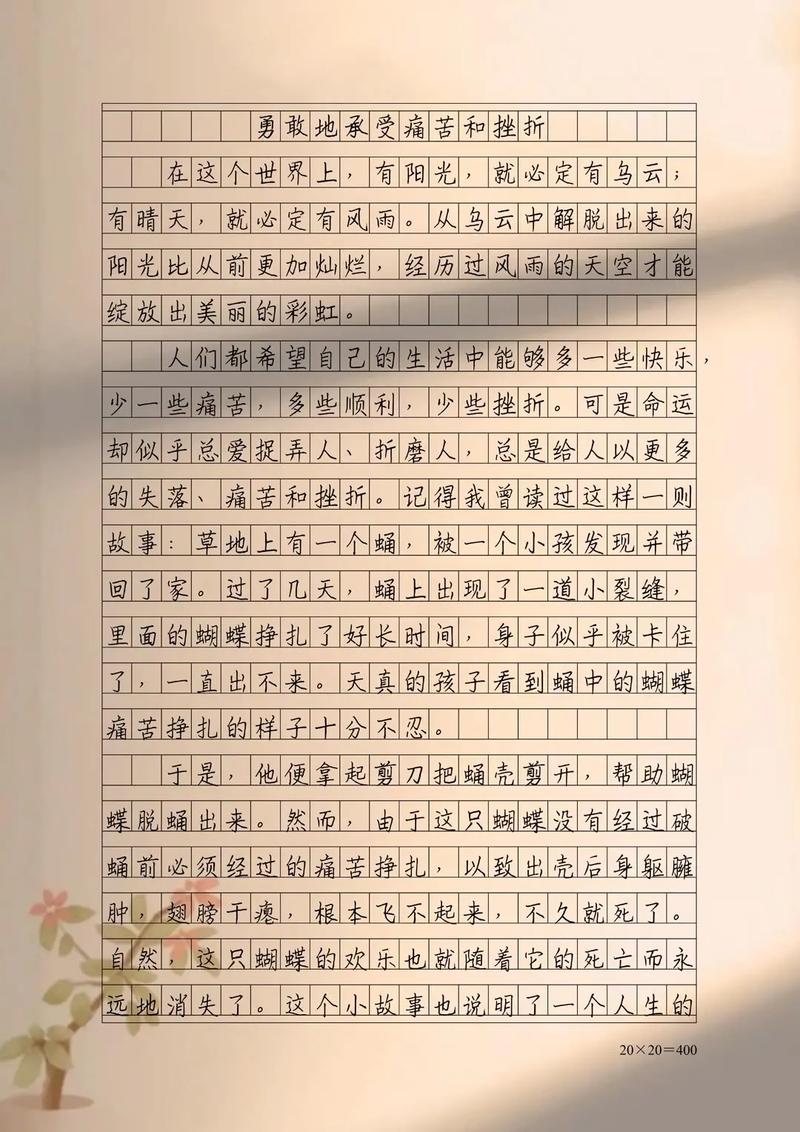 勇敢地承受痛苦和挫折
在这个世界上，有阳光，就必定有乌云；
有晴天，就必定有风雨。从乌云中解脱出来的
阳光比从前更加灿烂，经历过风雨的天空才能
绽放出美丽的彩虹。
人们都希望自己的生活中能够多一些快乐，
少一些痛苦，多些顺利，少些挫折。可是命运
却似乎总爱捉弄人、折磨人，总是给人以更多
的失落、痛苦和挫折。记得我曾读过这样一则
故事：草地上有一个蛹，被一个小孩发现并带
回了家。过了几天，蛹上出现了一道小裂缝，
里面的蝴蝶挣扎了好长时间，身子似乎被卡住
了，一直出不来。天真的孩子看到蛹中的蝴蝶
痛苦挣扎的样子十分不忍。
于是，他便拿起剪刀把蛹壳剪开，帮助蝴
蝶脱蛹出来。然而，由于这只蝴蝶没有经过破
蛹前必须经过的痛苦挣扎，以致出壳后身躯臃
肿，翅膀干瘪，根本飞不起来，不久就死了。
自然，这只蝴蝶的欢乐也就随着它的死亡而永
远地消失了。这个小故事也说明了一个人生的
20×20=400